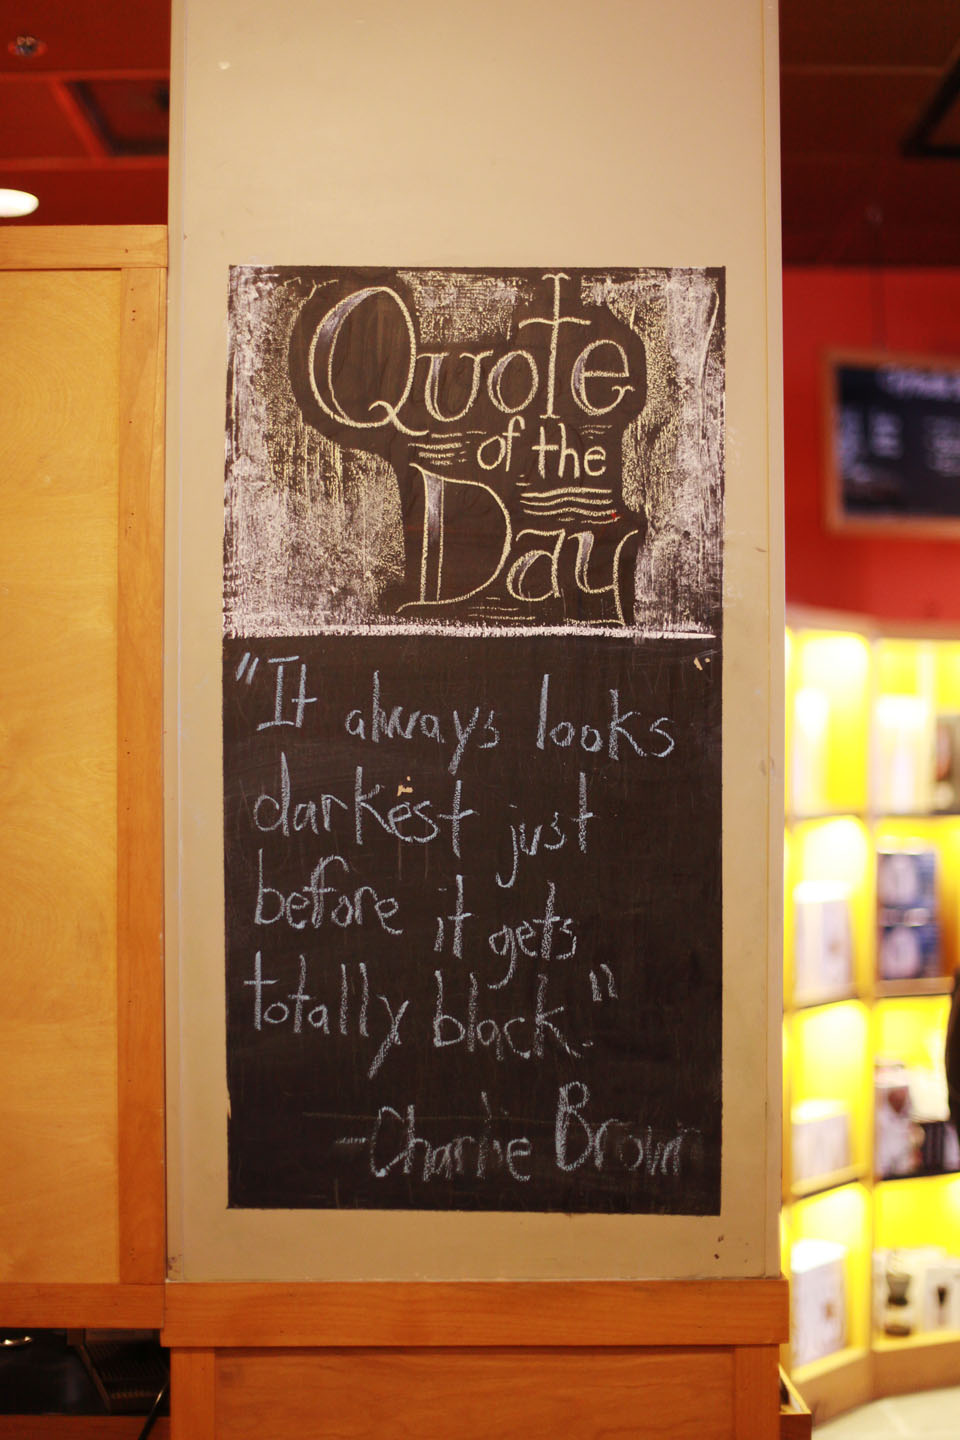 Quote
of the
Day
"It always looks
darkest just
before it gets
totally black."
-Charlie Brown